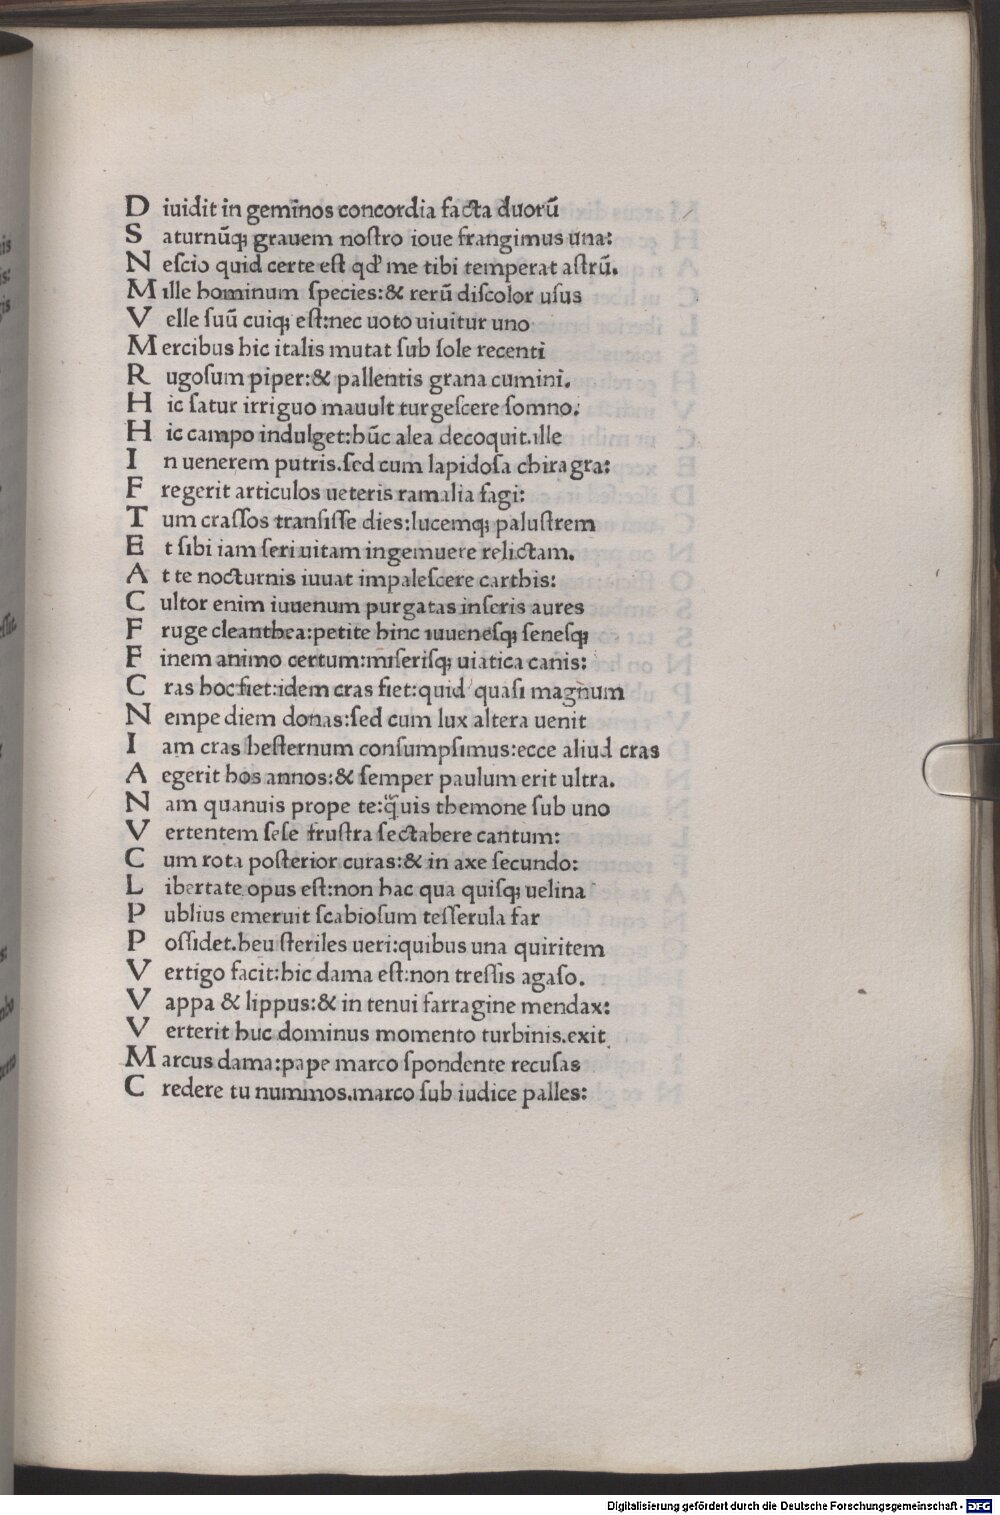 D iuidit in gemīnos concordia facta duorū
S aturnūq; grauem nostro ioue frangimus una:
N escio quid certe est qđ me tibi temperat astrū.
M ille hominum species:& rerū discolor usus
V elle suū cuiq; est:nec uoto uiuitur uno
M ercibus hic italis mutat sub sole recenti
R ugosum piper:& pallentis grana cumini.
H ic satur irriguo mauult turgescere somno.
H ic campo indulget:hūc alea decoquit.ille
I n uenerem putris.sed cum lapidosa chiragra:
F regerit articulos ueteris ramalia fagi:
T um crassos transisse dies:lucemq; palustrem
E t sibi iam seri uitam ingemuere relictam.
A t te nocturnis iuuat impalescere carthis:
C ultor enim iuuenum purgatas inseris aures
F ruge cleanthea:petite hinc iuuenesq; senesq;
F inem animo certum:miserisq; uiatica canis:
C ras hoc fiet:idem cras fiet:quid quasi magnum
N empe diem donas:sed cum lux altera uenit
I am cras hesternum consumpsimus:ecce aliud cras
A egerit hos annos:& semper paulum erit ultra.
N am quanuis prope te:q̃uis themone sub uno
V ertentem sese frustra sectabere cantum:
C um rota posterior curas:& in axe secundo:
L ibertate opus est:non hac qua quisq; uelina
P ublius emeruit scabiosum tesserula far
P ossidet.heu steriles ueri:quibus una quiritem
V ertigo facit:hic dama est:non tressis agaso.
V appa & lippus:& in tenui farragine mendax:
V erterit huc dominus momento turbinis.exit
M arcus dama:pape marco spondente recusas
C redere tu nummos.marco sub iudice palles:
Digitalisierung gefördert durch die Deutsche Forschungsgemeinschaft - DFG